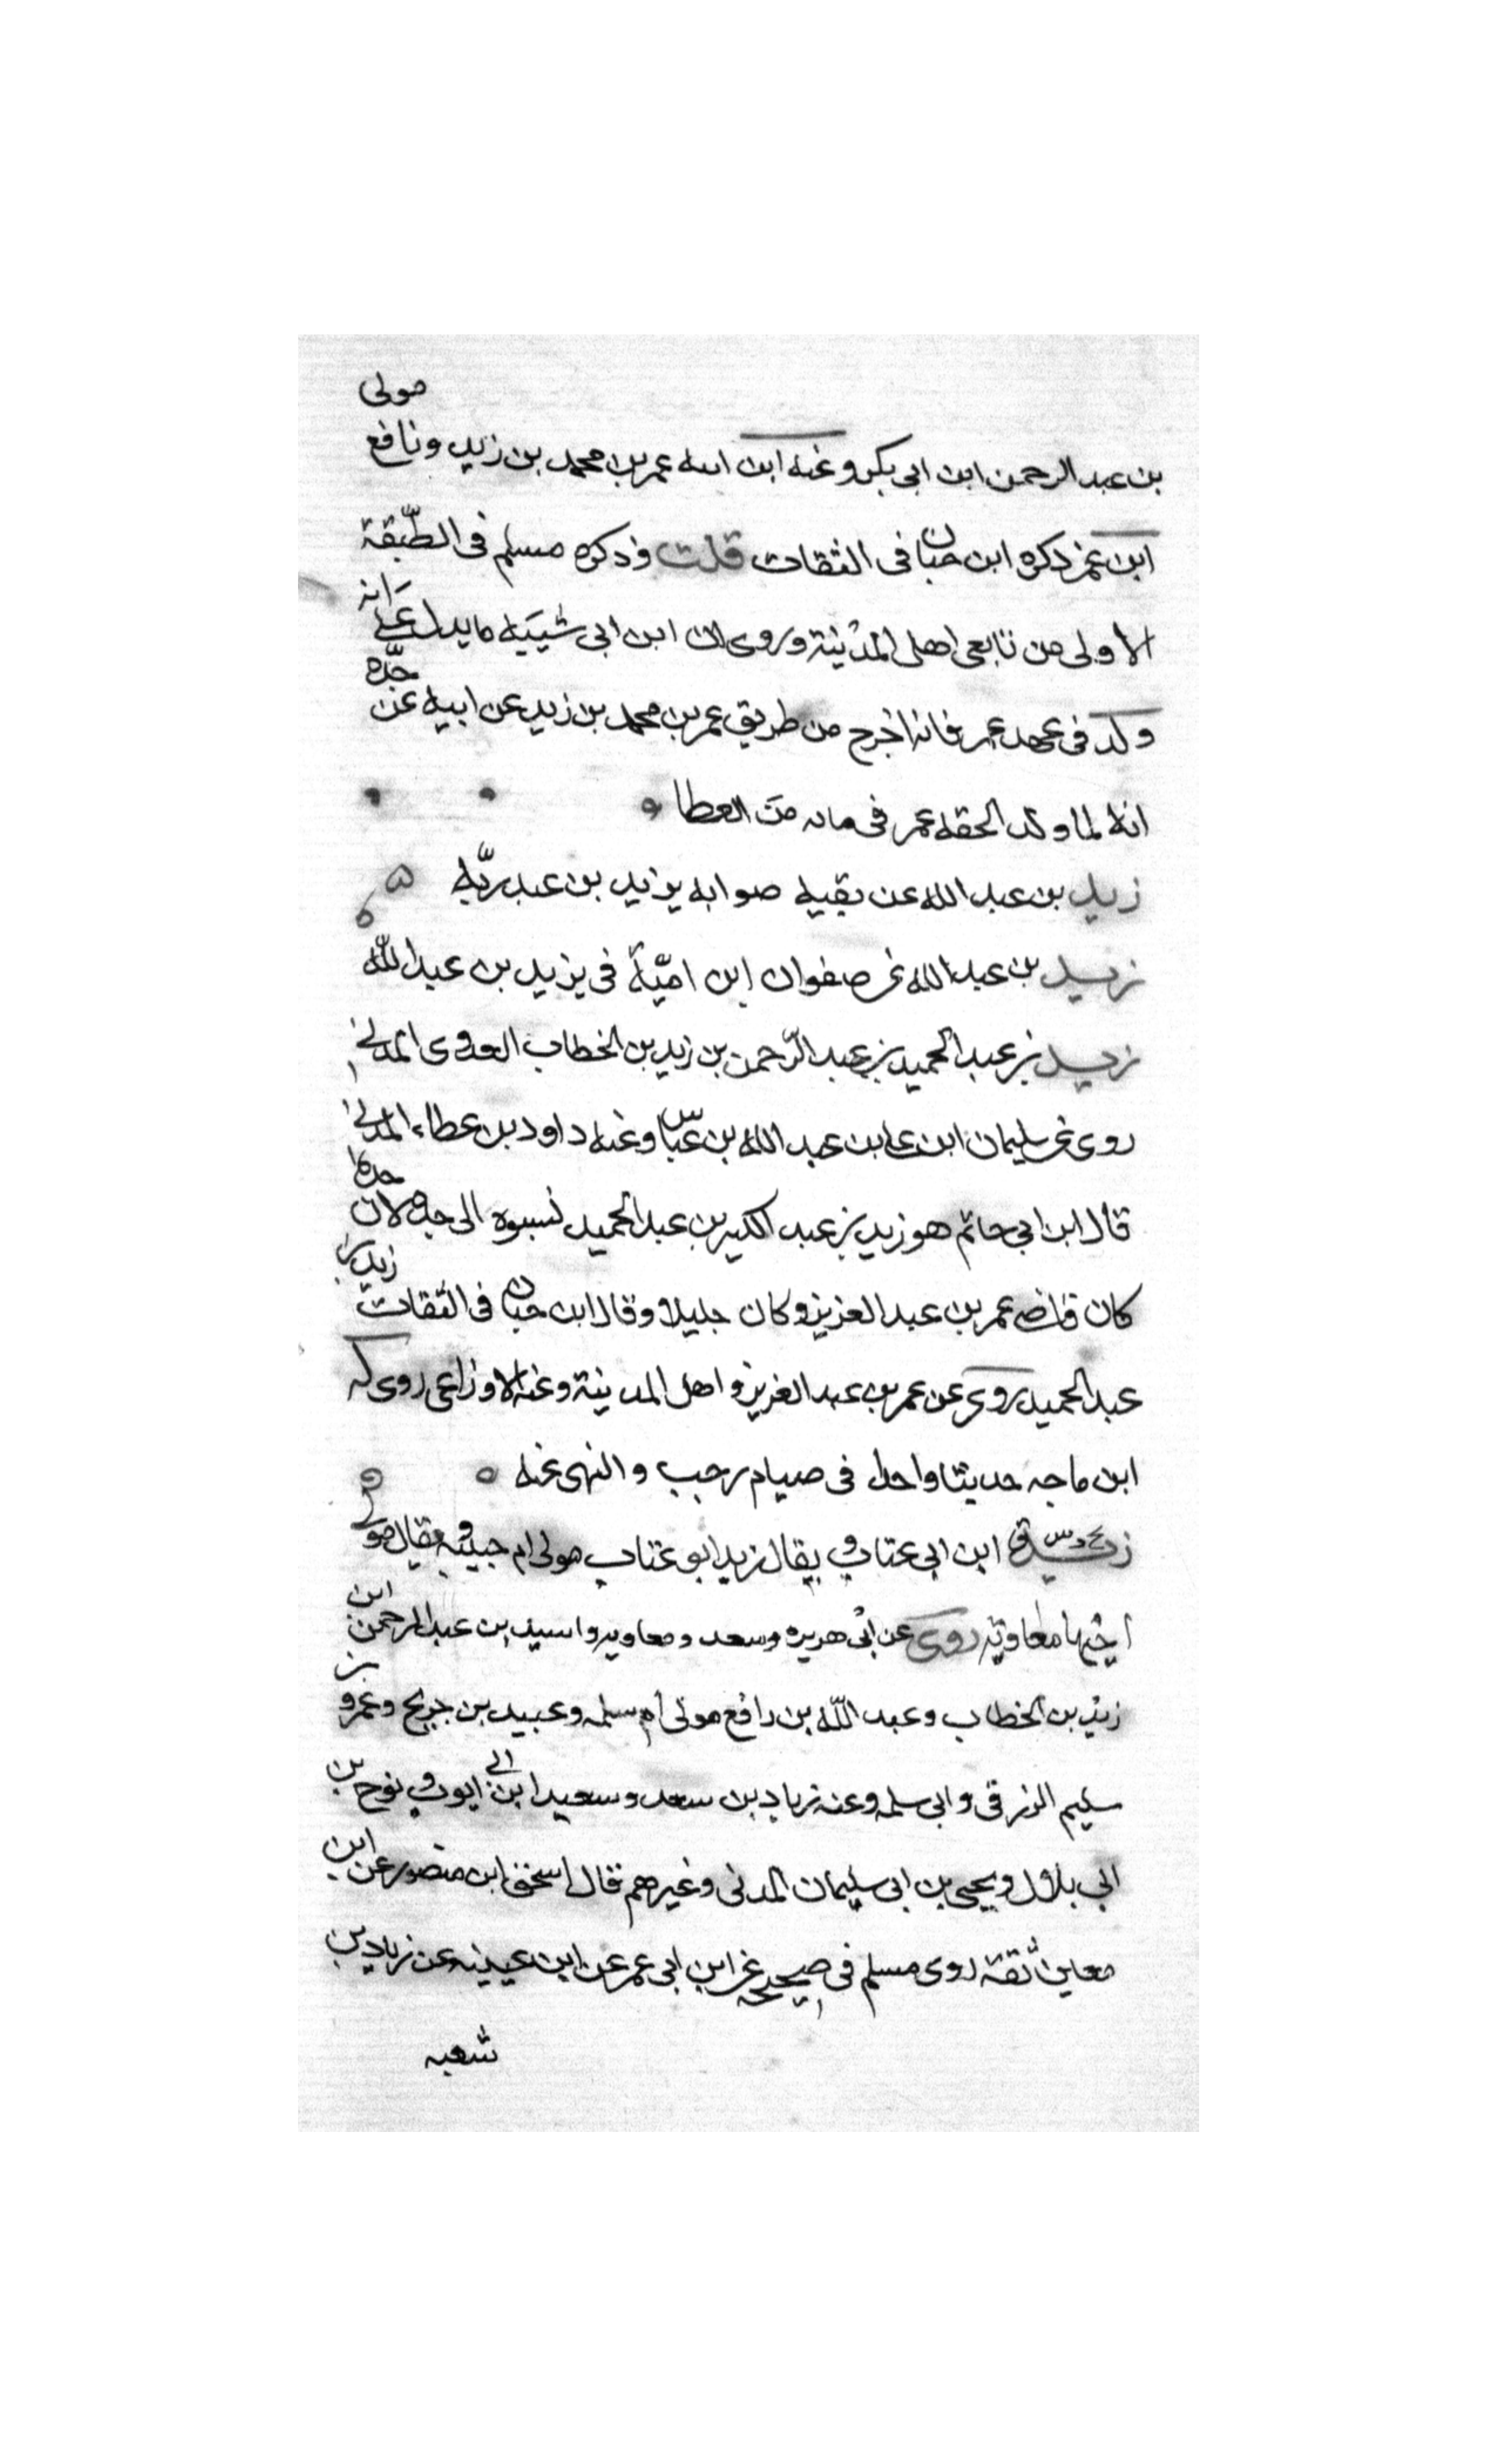 بن عبد الرحمن ابن ابى بكر وعنه ابن ابنه عمر بن محمد بن زيد ونافع مولى
ابن عمر ذكره ابن حبان فى الثقات قلت وذكره مسلم فى الطبقة
الاولى من تابعى اهل المدينة وروى ابن ابى شيبه ما يدل على انه
ولد فى عهد عمر فانه اخرج من طريق عمر بن محمد بن زيد عن ابيه عن جده
انه لما ولد الحقه عمر فى مايه من العطا
زيد بن عبد الله عن بقيه صوابه يزيد بن عبد ربّه
زيد بن عبد الله عن صفوان ابن اميّة فى يزيد بن عبد اللّه
زيد بن عبد الحميد بن عبد الرّحمن بن زيد بن الخطاب العدوى المدنى
روى عن سليمان ابن على بن عبد الله بن عبّاس وعنه داود بن عطاء المدنى
قال ابن ابى حاتم هو زيد بن عبد الكبير بن عبد الحميد نسبوه الى جده لان جده
كان قاضى عمر بن عبد العزيز وكان جليلا وقال ابن حبان فى الثقات زيد بن
عبد الحميد روى عن عمر بن عبد العزيز واهل المدينة وعنه الاوزاعى روى له
ابن ماجه حديثا واحدا فى صيام رجب والنهى عنه
زيد ابن ابى عتاب ويقال زيد ابو عتاب مولى ام حبيبه ويقال مولى
اخيها معاوية روى عن ابى هريره وسعد ومعاويه واسيد بن عبد الرحمن ابن
زيد بن الخطاب وعبد اللّه بن رافع مولى ام سلمه وعبيد بن جريج وعمرو بن
سليم الزرقى وابى سلمه وعنه زياد بن سعد وسعيد ابن ابى ايوب ونوح بن
ابى بلال ويحيى بن ابى سليمان المدنى وغيرهم قال اسحق ابن منصور عن ابن
معين ثقة روى مسلم فى صحيحه عن ابن ابى عمر عن ابن عيينه عن زياد بن
شعبه